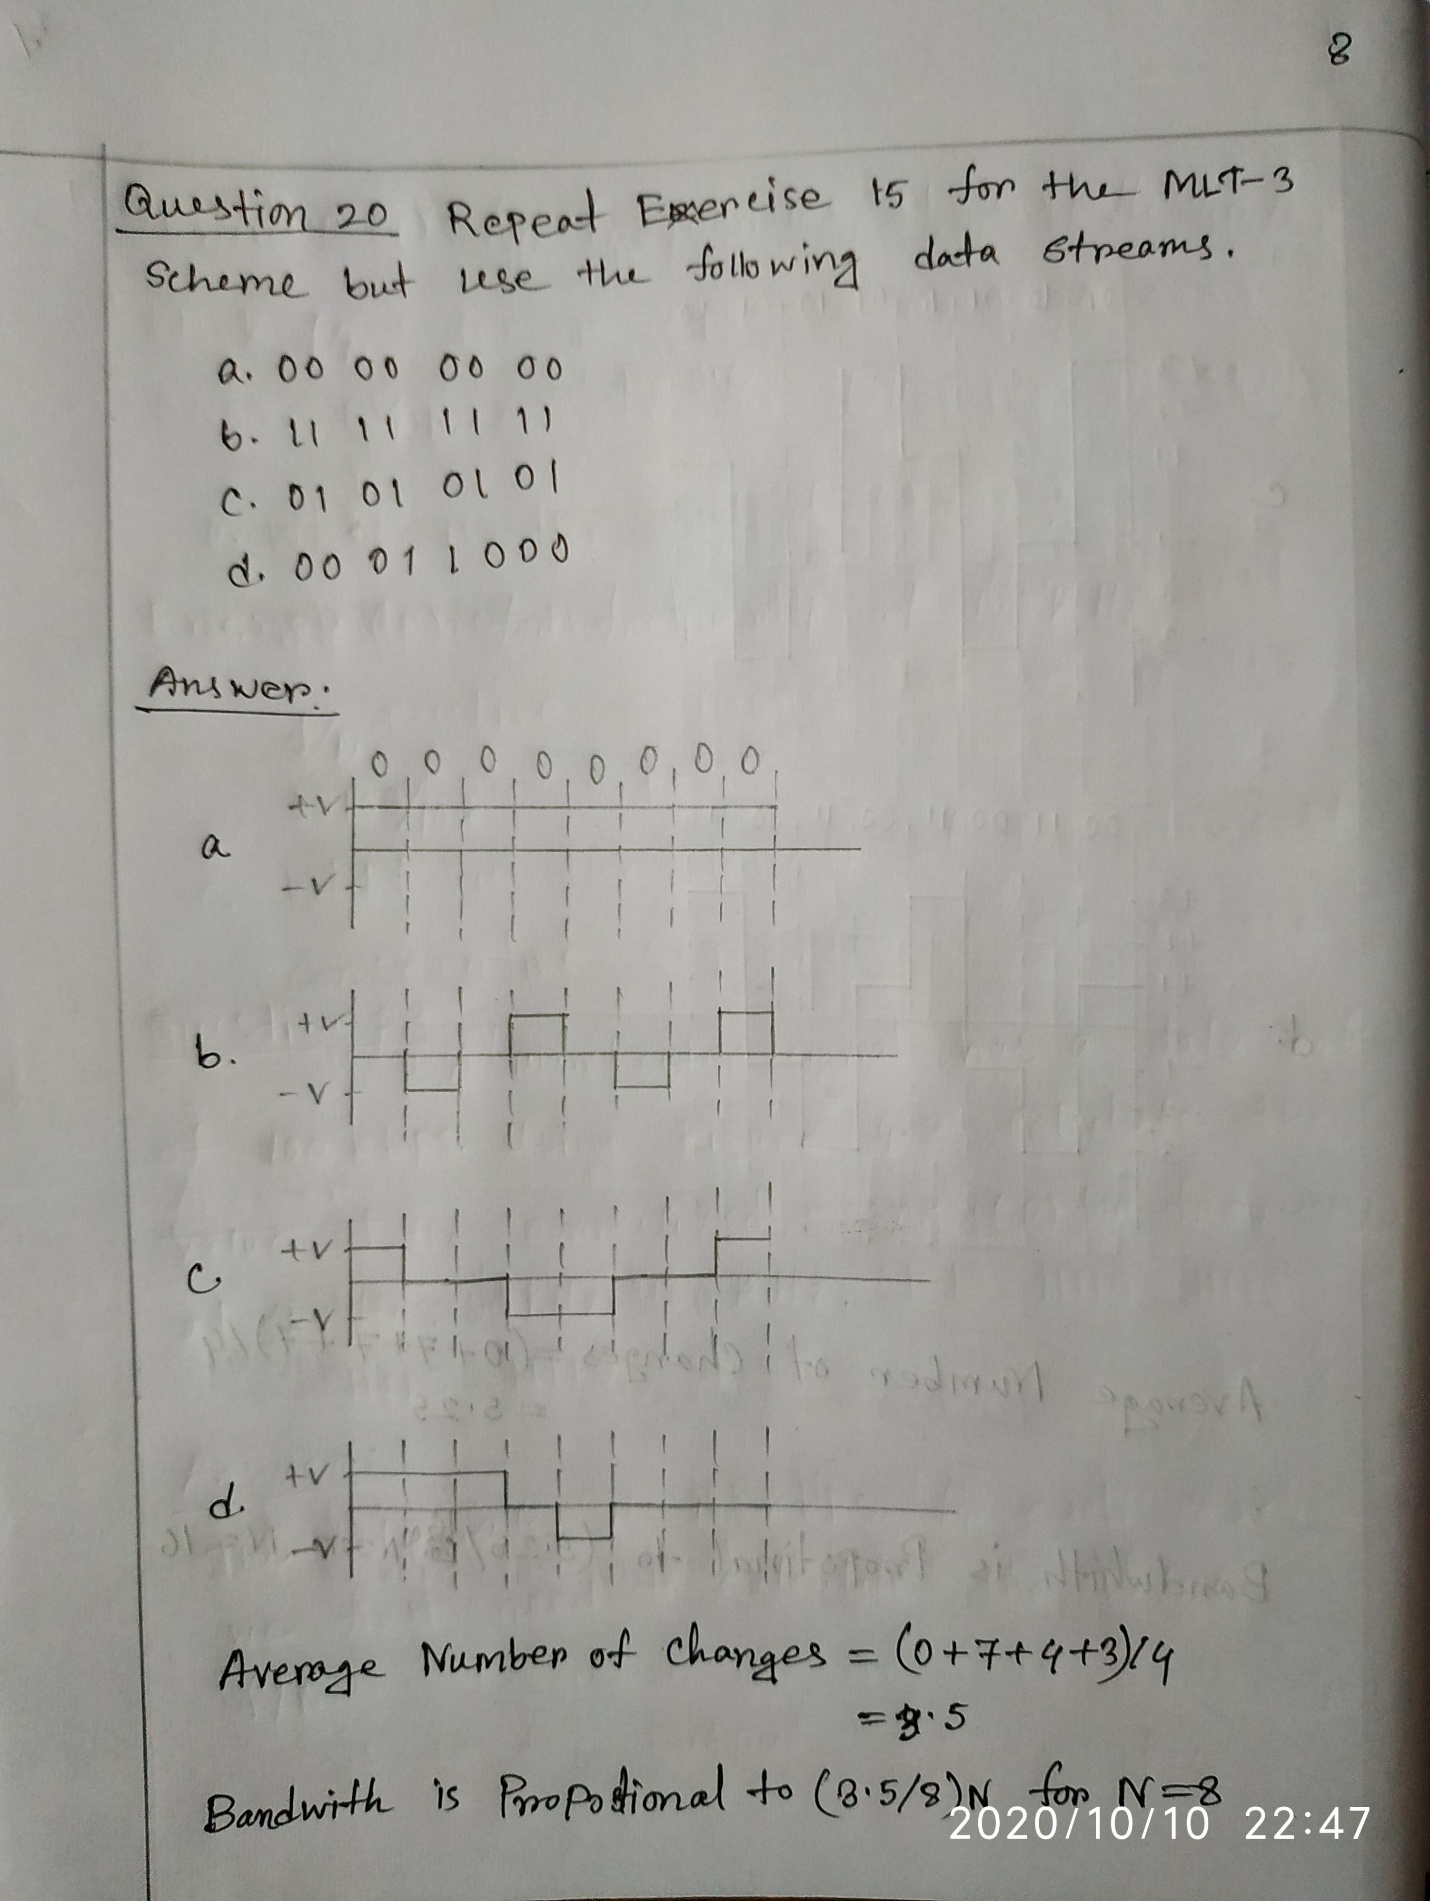 8
Question 20 Repeat Exercise 15 for the MLT-3
Scheme but use the following data streams.
a. 00 00 00 00
b. 11 11 11 11
c. 01 01 01 01
d. 00 01 1 000
Answer:
0 0 0 0 0 0 0 0
+V
a
-V
+V
b.
-V
+V
c
-V
+V
d.
-V
Average Number of changes = (0+7+4+3)/4
= 3.5
Bandwith is Propotional to (3.5/8)N for N=8
2020/10/10 22:47